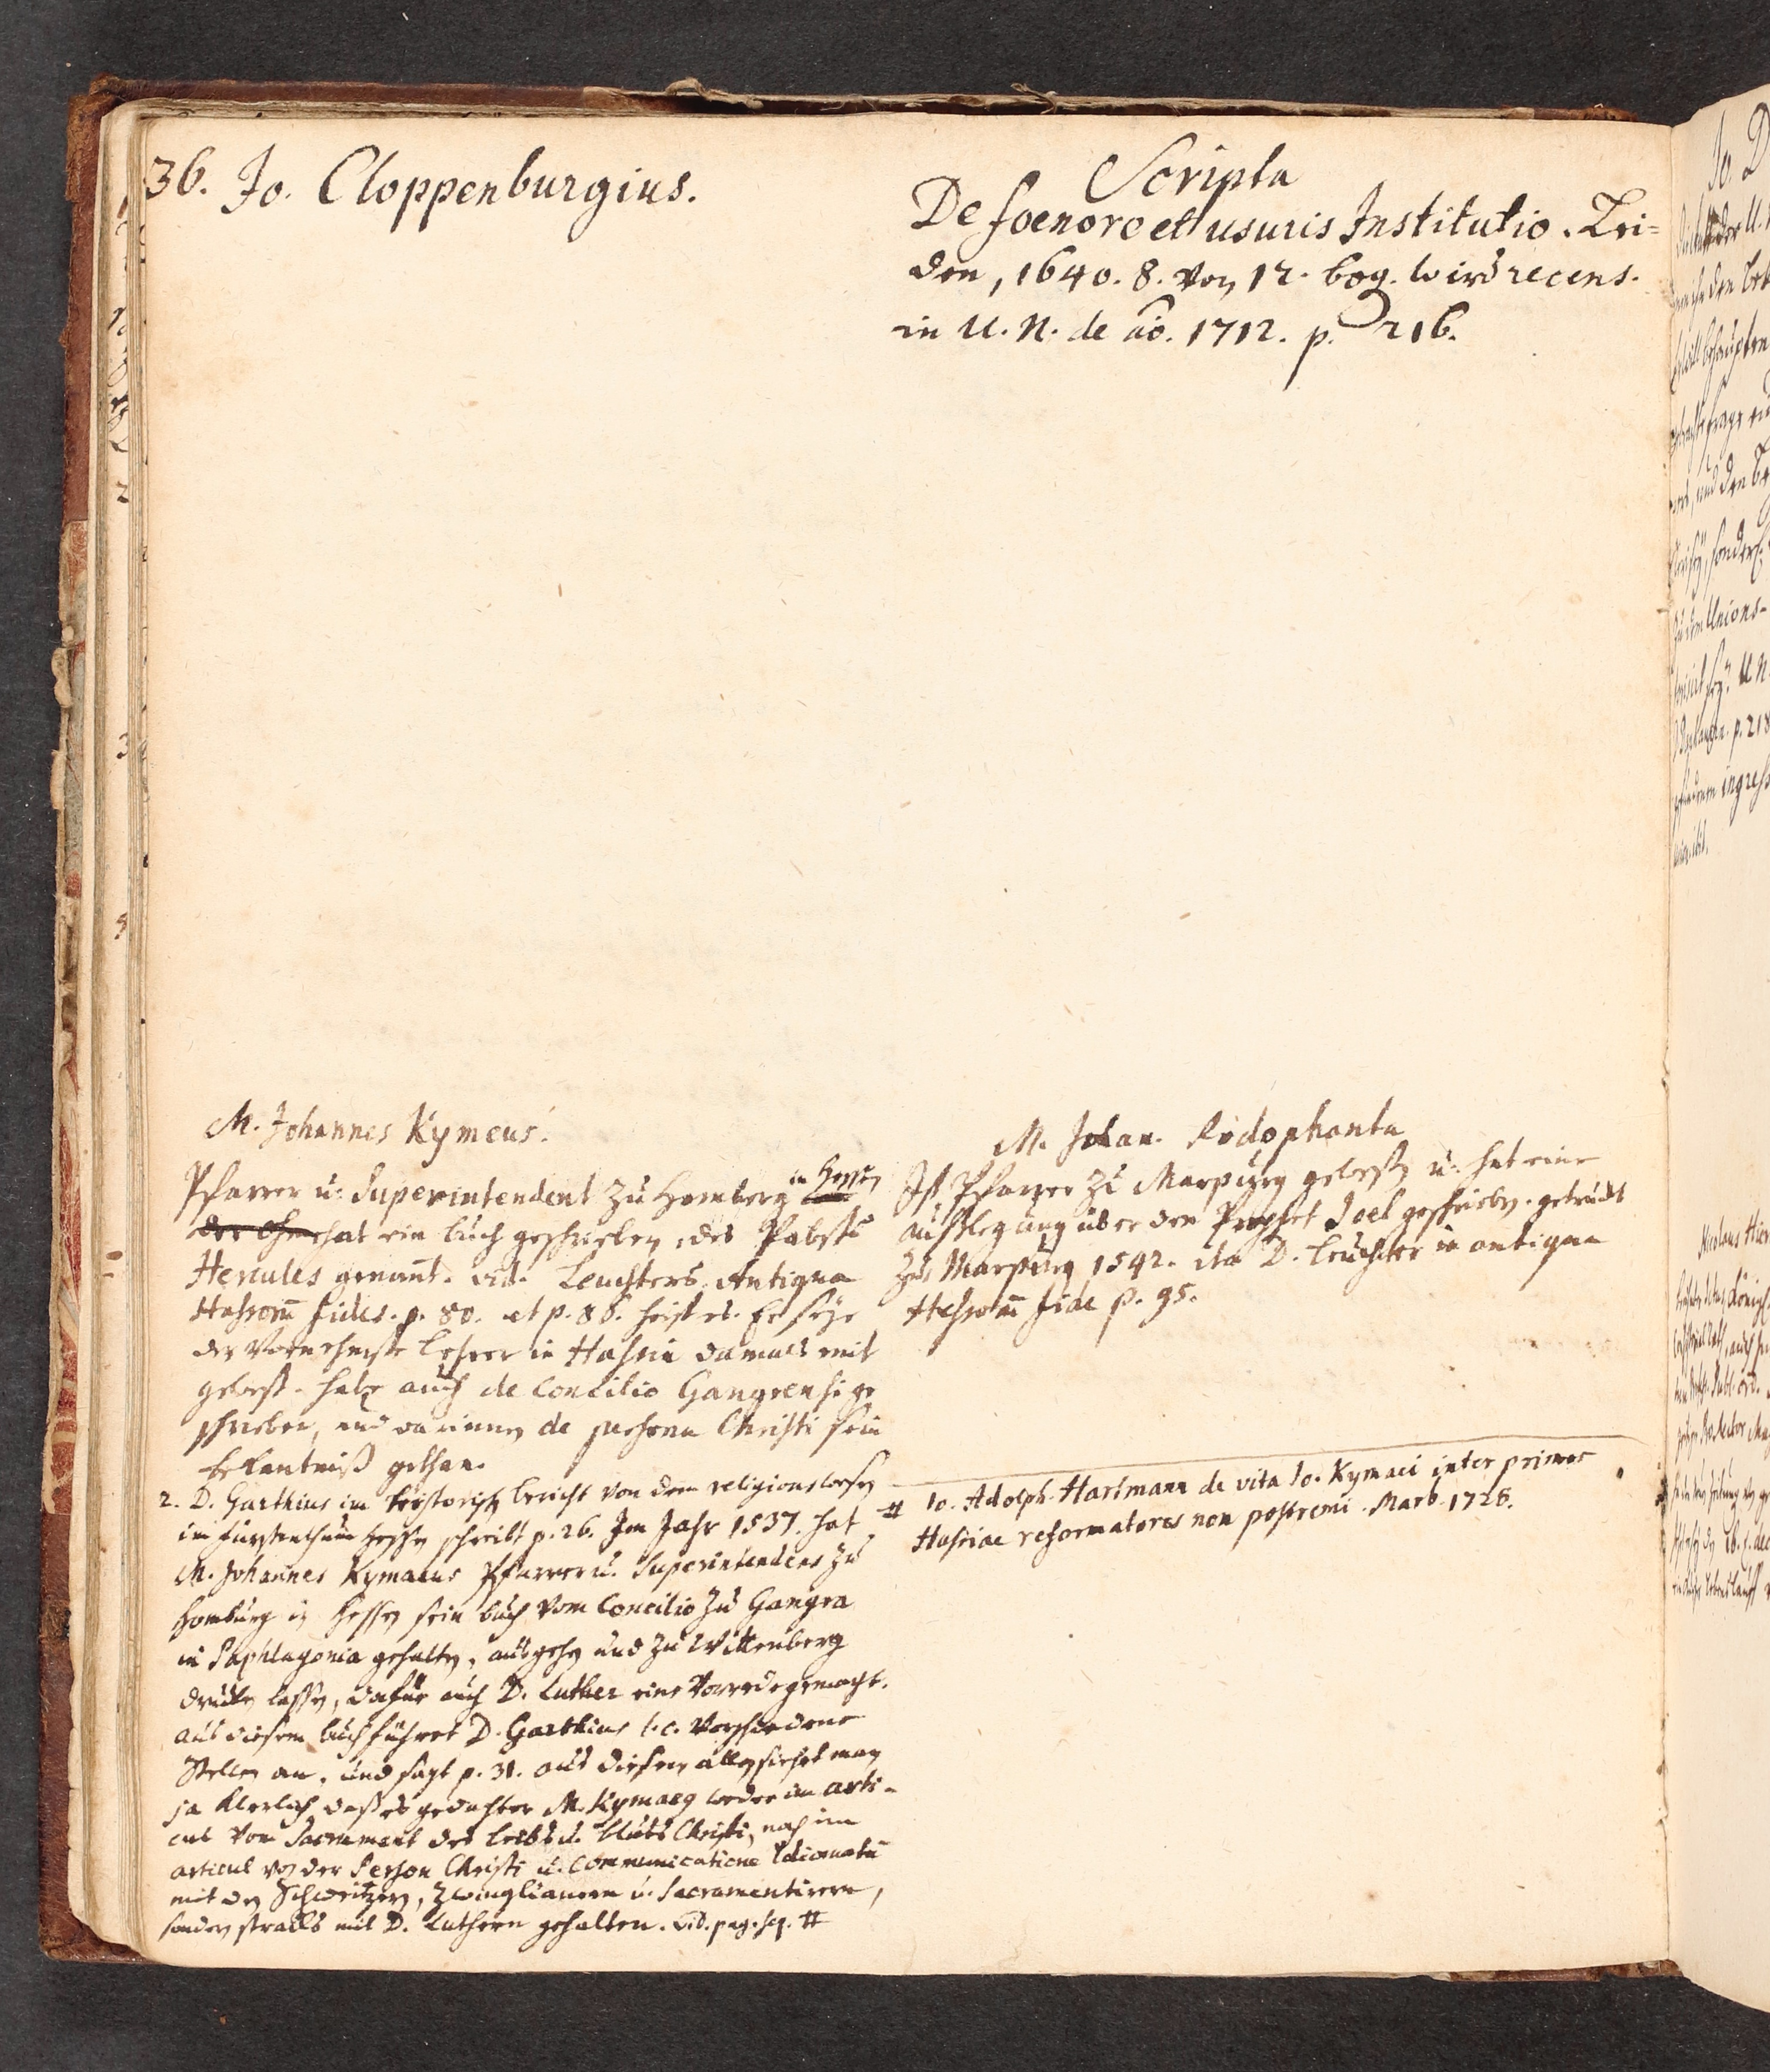 36. Jo. Cloppenburgius.
Scripta
De foenore et usuris Institutio. Lei=
den, 1640. 8. von 12. bog. wird recens.
in U. N. de ao. 1712. p. 216.
M. Johannes Kymeus.
Pfarrer u. Superintendent zu Homberg in Hessen
der Ohm hat ein buch geschrieben, des Pabsts
Hercules genant. vid. Leuchters Antiqua
Hassorum fides. p. 80. et p. 86. heist es. Er seye
der Vornehmste Lehrer in Hassia damals mit
gewest. habe auch de Concilio Gangrensi ge
schrieben, und darinnen de persona Christi sein
bekantniß gethan.
2. D. Garthius im historisch bericht von dem religionswesen
im fürstenthum Hessen schreibt p. 26. Im Jahr 1537. hat
M. Johannes Kymaeus Pfarrer u. Superintendens zu
Homburg in Hessen sein buch vom Concilio zu Gangra
in Paphlagonia gehalten, ausgehen und zu Wittenberg
drucken lassen, dafür auch D. Luther eine Vorrede gemacht.
aus diesem buch führet D. Garthius l. c. verschiedene
Stellen an, und sagt p. 31. aus diesem allen siehet man
ja klerlich das es gedachter M. Kymaeus weder im arti-
cul vom Sacrament des leibs u. bluts Christi, noch im
articul von der Person Christi u. communicatione Idiomatum
mit den Schweitzern, Zwinglianern u. Sacramentirern,
sondern stracks mit D. Luthern gehalten. vid. pag. seq. #
M. Johan. Rodophanta
Ist Pfarrer zu Marpurg gewesen u. hat eine
außlegung über den Prophet Joel geschrieben. getruckt
zu Marpurg 1542. ita D. Leuchter in antiqua
Hessorum fide p. 95.
# Io. Adolph. Hartmann de vita Io. Kymaei inter primos
Hassiae reformatores non postremi. Marb. 1728.